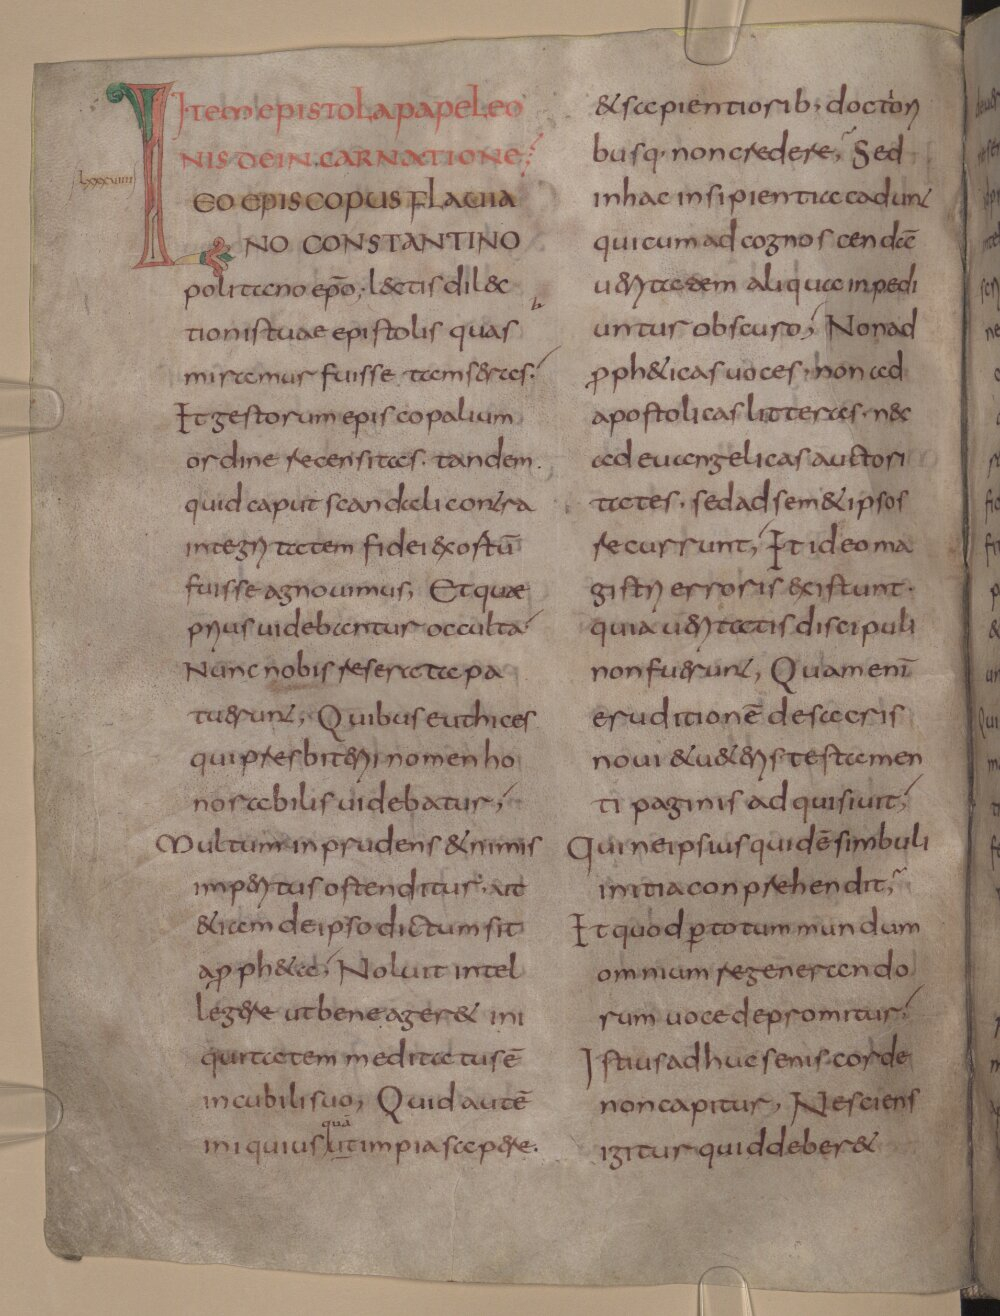 Item epistola pape leo
nis de incarnatione;
lxxxviiii
LEO EPISCOPUS FLAVIA
NO CONSTANTINO
politano epō; lectis dilec
tionis tuae epistolis quas
miramur fuisse tam seras;
Et gestorum episcopalium
ordine recensitas. tandem
quid caput scandali contra
integritatem fidei exostū
fuisse agnovimus; Et quae
prius videbantur occulta
Nunc nobis reserata pa
tuerunt; Quibus euthices
qui presbiteri nomen ho
norabilis videbatur;
Multum inprudens & nimis
imperitus ostenditur. ait
& iam de ipso dictum sit
a proph&a; Noluit intel
legere ut bene ager& ini
quitatem meditatus ē
in cubili suo; Quid autē
iniquius quā ut impia sapere.
& sapientiorib; doctori
busq. non credere; Sed
in hac insipientia cadunt
qui cum ad cognoscendā
veritatem aliqua inpedi
untur obscuro; Non ad
proph&icas voces. non ad
apostolicas litteras. nec
ad euangelicas auctori
tates. sed ad sem&ipsos
recurrunt; Et ideo ma
gistri erroris existunt.
quia veritatis discipuli
non fuerunt; Quam enī
eruditionē de sacris
novi & ueteris testamen
ti paginis adquisiuit;
Qui ne ipsius quidē simbuli
initia conprehendit;
Et quod per totum mundum
omnium regenerando
rum voce depromitur;
Istius adhuc senis corde
non capitur; Nesciens
igitur quid deber&